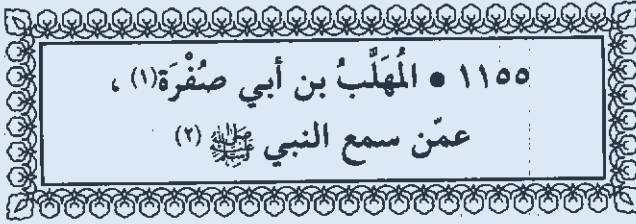 ١١٥٥ • المُهَلَّبُ بن أبي صُفْرَة(١) ،
عمّن سمع النبي ﷺ (٢)